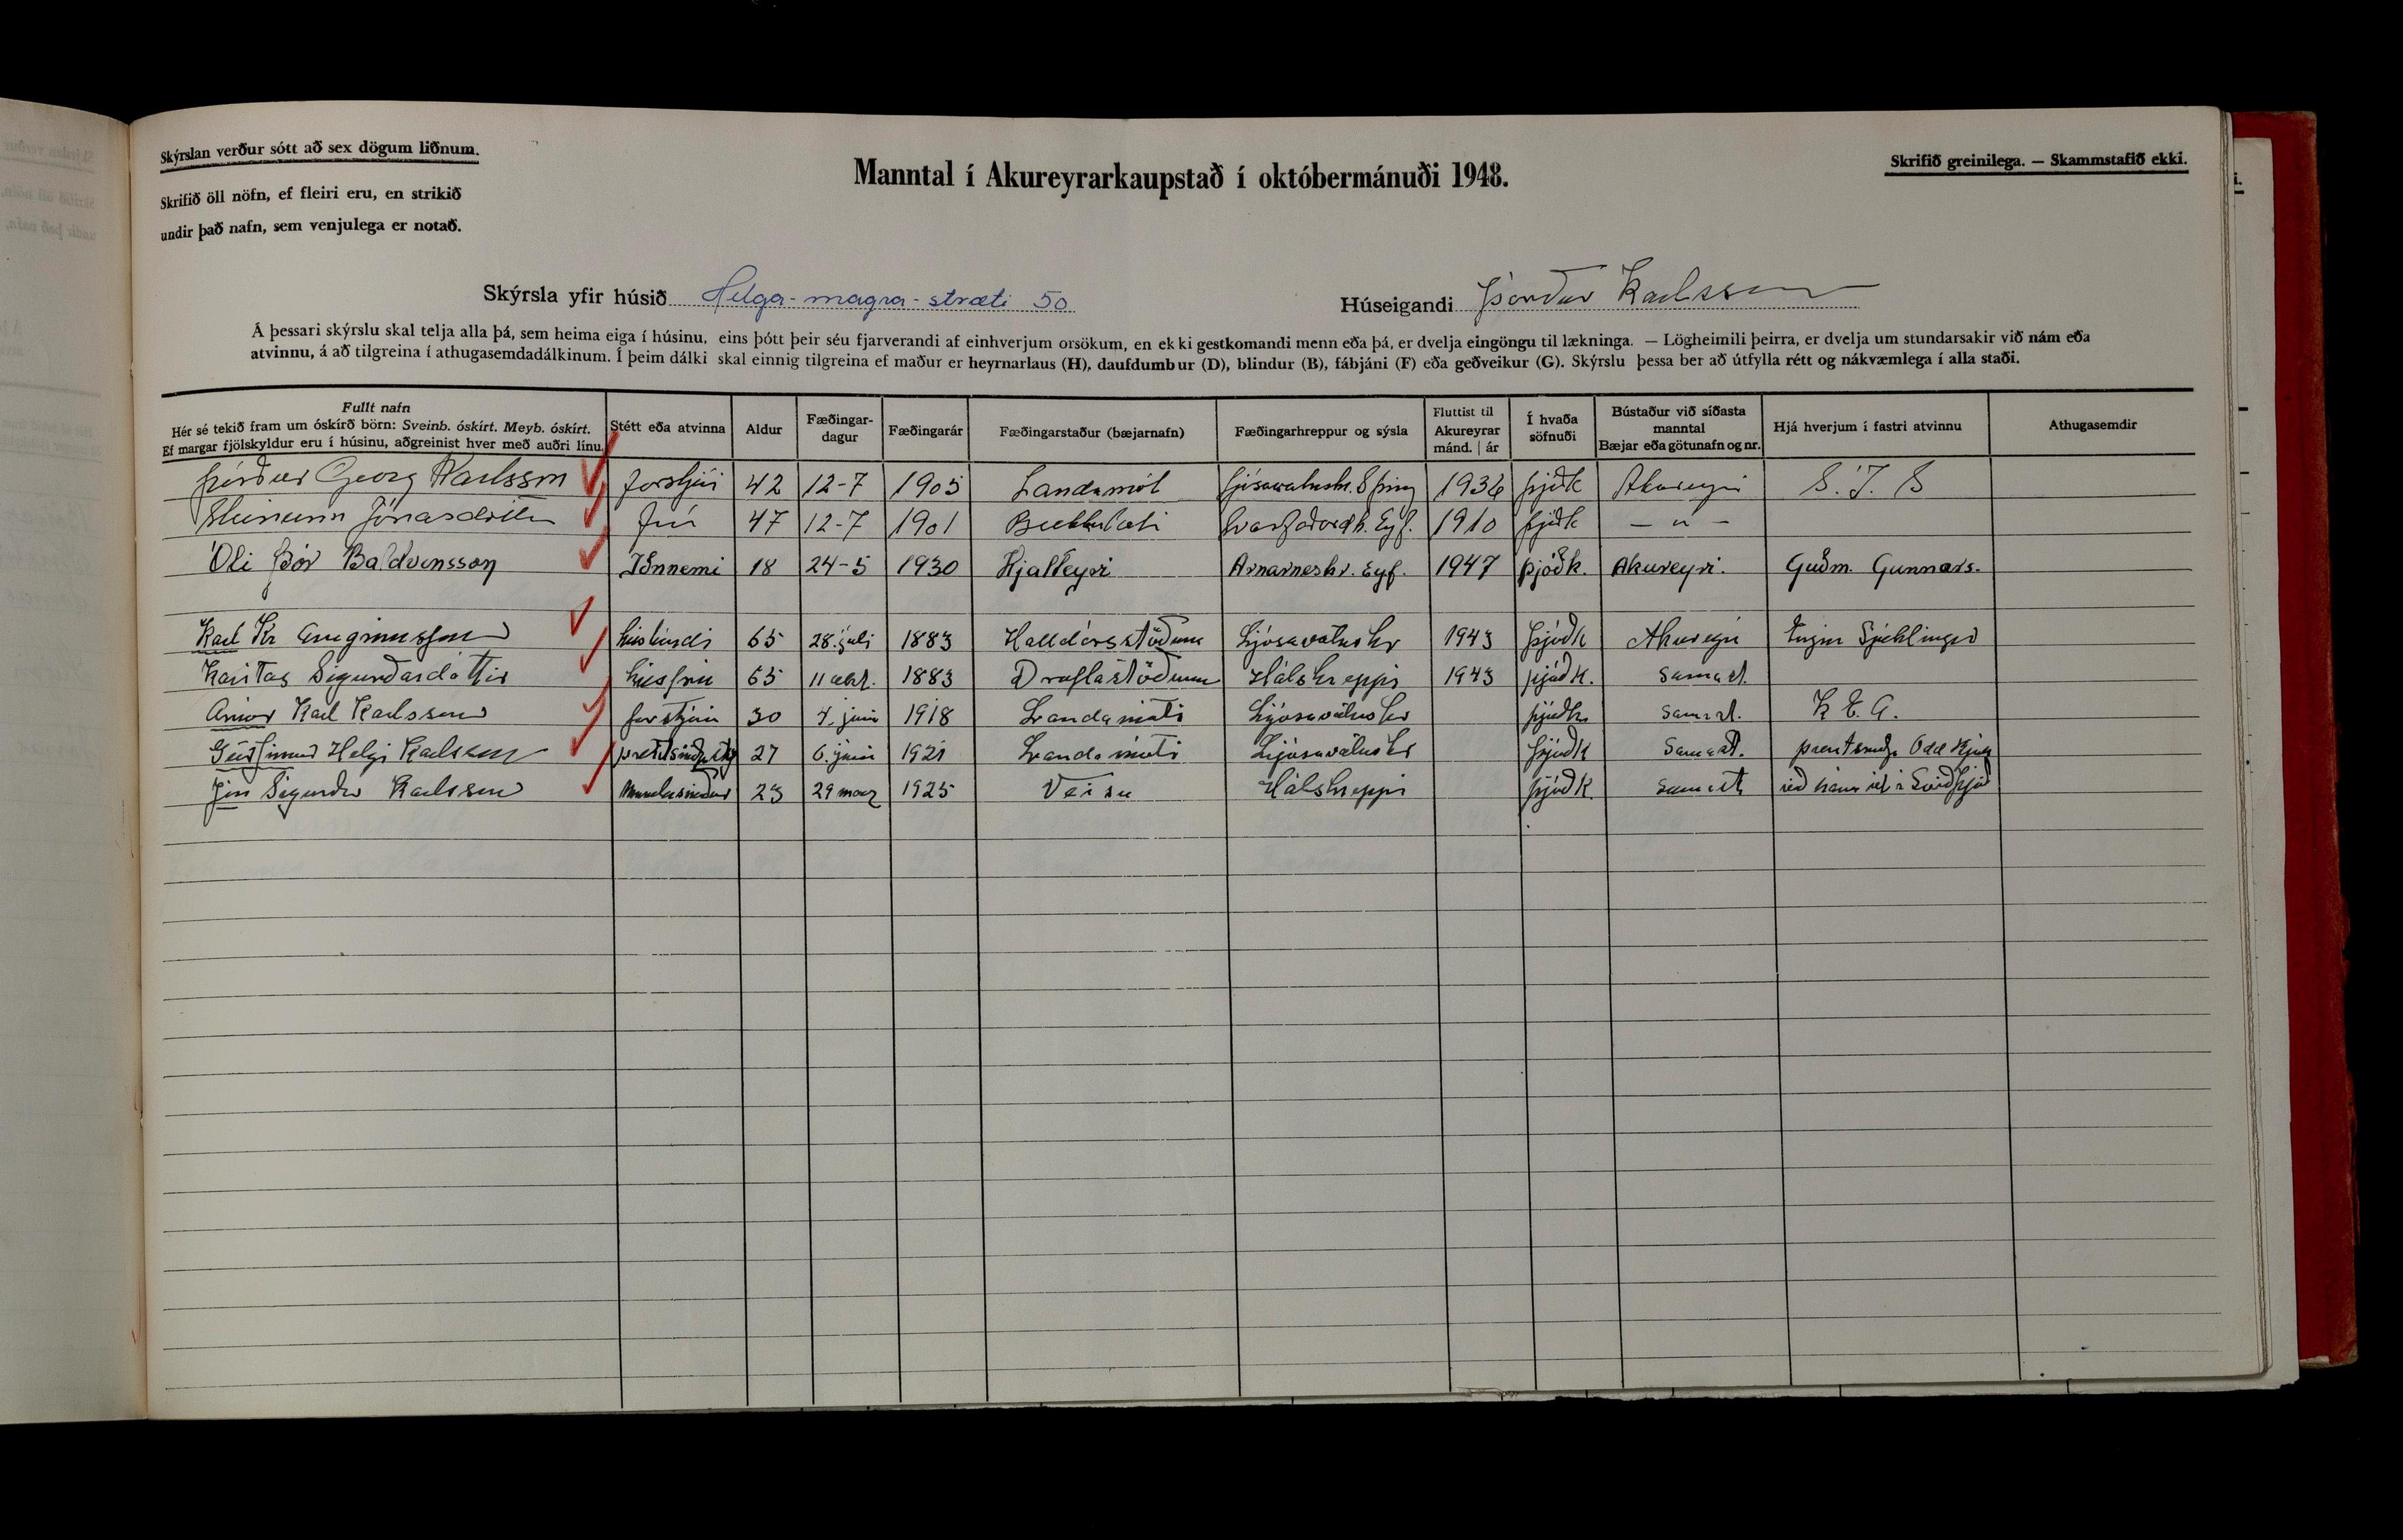 Skýrslan verður sótt að sex dögum liðnum.
Skrifið öll nöfn, ef fleiri eru, en strikið
undir það nafn, sem venjulega er notað.
Manntal í Akureyrarkaupstað í októbermánuði 1948.
Skrifið greinilega. — Skammstafið ekki.
Skýrsla yfir húsið Helga-magra-stræti 50
Húseigandi Þórður Karlsson
Á þessari skýrslu skal telja alla þá, sem heima eiga í húsinu, eins þótt þeir séu fjarverandi af einhverjum orsökum, en ekki gestkomandi menn eða þá, er dvelja eingöngu til lækninga. — Lögheimili þeirra, er dvelja um stundarsakir við nám eða
atvinnu, á að tilgreina í athugasemdadálkinum. Í þeim dálki skal einnig tilgreina ef maður er heyrnarlaus (H), daufdumbur (D), blindur (B), fábjáni (F) eða geðveikur (G). Skýrslu þessa ber að útfylla rétt og nákvæmlega í alla staði.
Fullt nafn
Hér sé tekið fram um óskírð börn: Sveinb. óskírt. Meyb. óskírt.
Ef margar fjölskyldur eru í húsinu, aðgreinist hver með auðri línu.
Stétt eða atvinna
Aldur
Fæðingar-
dagur
Fæðingarár
Fæðingarstaður (bæjarnafn)
Fæðingarhreppur og sýsla
Fluttist til
Akureyrar
mánd. | ár
Í hvaða
söfnuði
Bústaður við síðasta
manntal
Bæjar eða götunafn og nr.
Hjá hverjum í fastri atvinnu
Athugasemdir
Þórður Georg Karlsson forstjóri 42 12-7 1905 Landamót Ljósavatnshr. S þing 1936 þjóðk Akureyri S.Í.S
Steinunn Jónasdóttir frú 47 12-7 1901 Svarfaðardh. Eyf. 1910 þjóðk — " —
Óli Þór Baldvinsson Iðnnemi 18 24-5 1930 Hjalteyri Arnarneshr. Eyf. 1947 þjóðk. Akureyri. Guðm. Gunnars.
Karl Kr Arngrimsson húsbóndi 65 28. júli 1883 Halldórsstöðum Ljósavatnshr 1943 þjóðk Akureyri Engum Sjúklingur
Karitas Sigurðardóttir húsfrú 65 11 okt. 1883 Draflastöðum Hálshreppi 1943 þjóðk. Samast.
Arnór Karl Karlsson forstjóri 30 4. júni 1918 Landamóti Ljósavatnshr þjóðk. Samast. K.E.A.
Geirfinnur Helgi Karlsson 27 6. júni 1921 Landamóti Ljósavatnshr þjóðk Samast. prentsmiðja Odd Björn
Jón Sigurður Karlsson 23 29 marz 1925 Veisu Hálshreppi þjóðk. Samast við nám út í Svíðþjóð